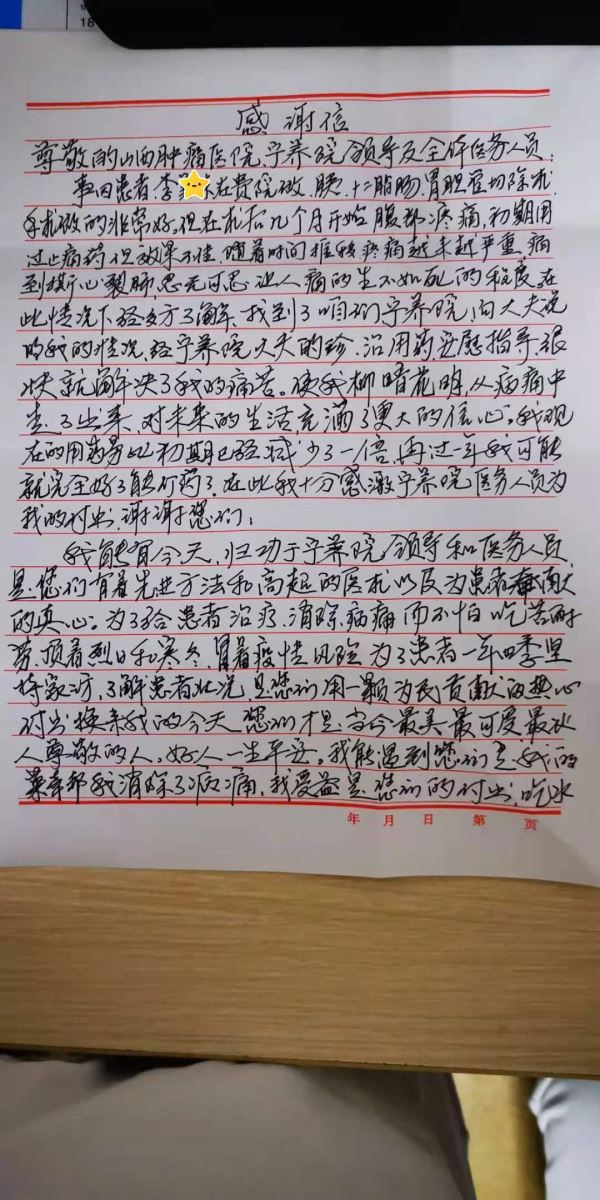 18
感谢信
尊敬的山西肿瘤医院宁养院领导及全体医务人员:
事因患者李 在贵院做胰.十二脂肠.胃胆管切除术
手术做的非常好,但在术后几个月开始腹部疼痛,初期用
过止痛药但效果不佳,随着时间推移疼痛越来越严重,痛
到撕心裂肺,忍无可忍,让人痛的生不如死的程度。在
此情况下经多方了解,找到了咱们宁养院,向大夫说
的我的情况,经宁养院大夫的珍.治用药安慰指导很
快就解决了我的痛苦。使我柳暗花明,从病痛中
走了出来,对未来的生活充满了更大的信心。我现
在的用药量比初期已经减少了一倍,再过一年我可能
就完全好了能停药了,在此我十分感激宁养院医务人员为
我的付出,谢谢您们;
我能有今天,归功于宁养院领导和医务人员,
是您们有着先进方法和高超的医术以及为患者 献
的真心。为了给患者治疗.消除病痛而不怕吃苦耐
劳,顶着烈日和寒冬,冒着疫情风险为了患者一年四季坚
持家访,了解患者状况,是您们用一颗为民贡献的热心
付出换来我的今天,您们才是当今最美最可爱最让
人尊敬的人。好人一生平安。我能遇到您们是我的
荣幸帮我消除了病痛,我受益是您们的付出,吃水
年 月 日 第 页